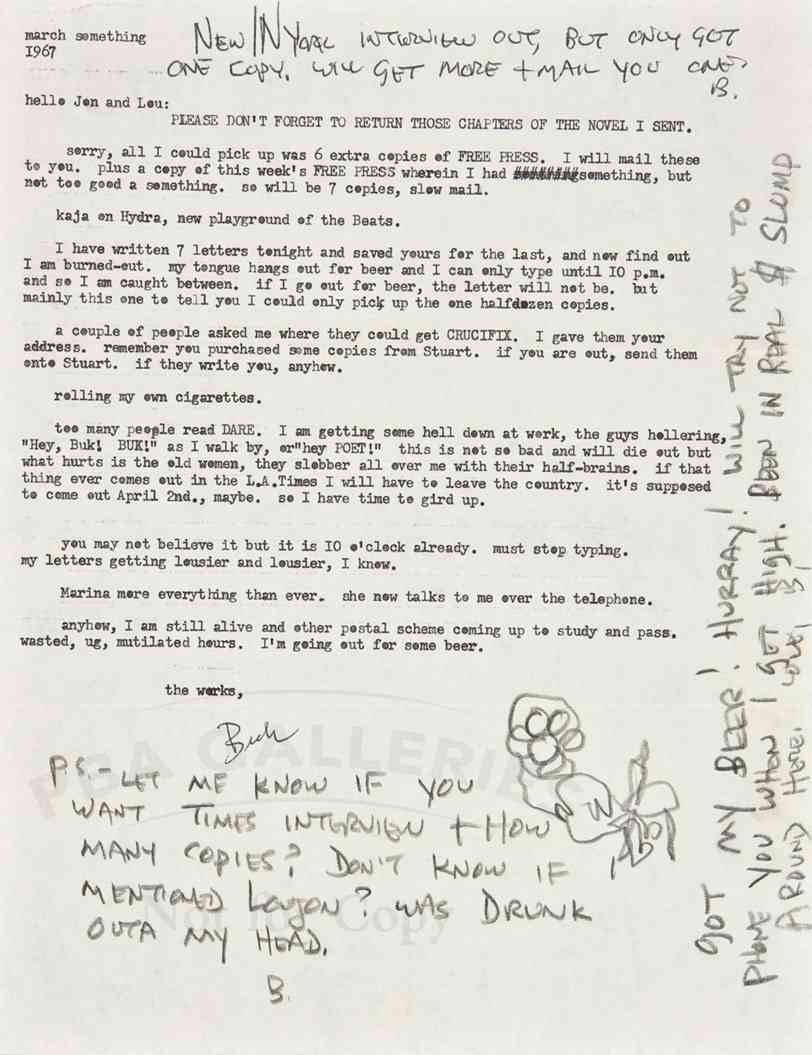 march something
1967
NEW/N YORK INTERVIEW OUT, BUT ONLY GOT
ONE COPY. WILL GET MORE + MAIL YOU ONE.
B.
hello Jon and Lou:
PLEASE DON'T FORGET TO RETURN THOSE CHAPTERS OF THE NOVEL I SENT.
sorry, all I could pick up was 6 extra copies of FREE PRESS. I will mail these
to you. plus a copy of this week's FREE PRESS wherein I had something, but
not too good a something. so will be 7 copies, slow mail.
kaja on Hydra, new playground of the Beats.
I have written 7 letters tonight and saved yours for the last, and now find out
I am burned-out. my tongue hangs out for beer and I can only type until IO p.m.
and so I am caught between. if I go out for beer, the letter will not be. but
mainly this one to tell you I could only pick up the one halfdozen copies.
a couple of people asked me where they could get CRUCIFIX. I gave them your
address. remember you purchased some copies from Stuart. if you are out, send them
onto Stuart. if they write you, anyhow.
rolling my own cigarettes.
too many people read DARE. I am getting some hell down at work, the guys hollering,
"Hey, Buk! BUK!" as I walk by, or"hey POET!" this is not so bad and will die out but
what hurts is the old women, they slobber all over me with their half-brains. if that
thing ever comes out in the L.A.Times I will have to leave the country. it's supposed
to come out April 2nd., maybe. so I have time to gird up.
you may not believe it but it is IO o'clock already. must stop typing.
my letters getting lousier and lousier, I know.
Marina more everything than ever. she now talks to me over the telephone.
anyhow, I am still alive and other postal scheme coming up to study and pass.
wasted, ug, mutilated hours. I'm going out for some beer.
the works,
Buk
P.S.- LET ME KNOW IF YOU
WANT TIMES INTERVIEW + HOW
MANY COPIES? DON'T KNOW IF I
MENTIONED LOUJON? WAS DRUNK
OUTA MY HEAD.
B.
GOT MY BEER! HURRAY! WILL TRY NOT TO
PHONE YOU WHEN I GET HIGH. BEEN IN REAL $ SLUMP
AROUND HERE. LOVE, B.
PBA GALLERIES
Not Copy